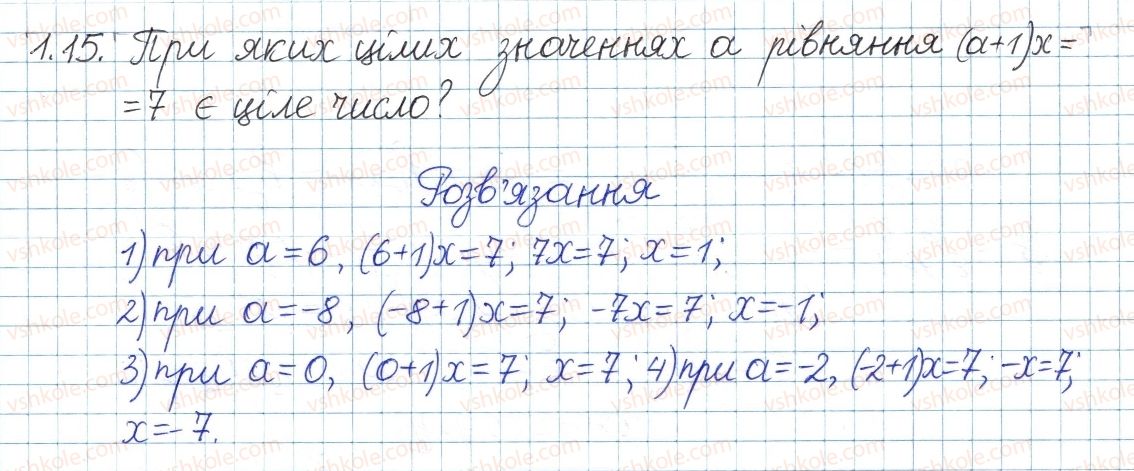 1.15. При яких цілих значеннях а рівняння (a+1)x=
=7 є ціле число?
Розв'язання
1) при a=6, (6+1)x=7; 7x=7; x=1;
2) при a=-8, (-8+1)x=7; -7x=7; x=-1;
3) при a=0, (0+1)x=7; x=7; 4) при a=-2, (-2+1)x=7; -x=7;
x=-7.